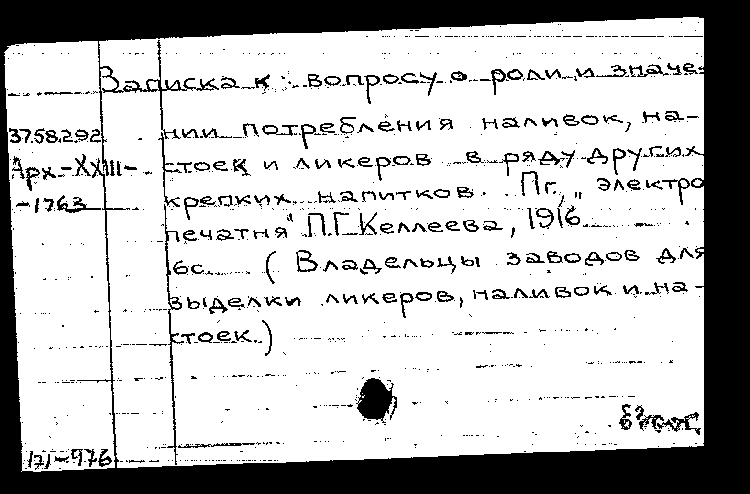 Записка к вопросу о роли и значе-
3758292 нии потребления наливок, на-
Арх.-XXIII- стоек и ликеров в ряду других
-1763 крепких напитков. Пг., „электро
печатня" П.Г.Келлеева, 1916
6с. (Владельцы заводов для
выделки ликеров, наливок и на-
стоек.)
171-976